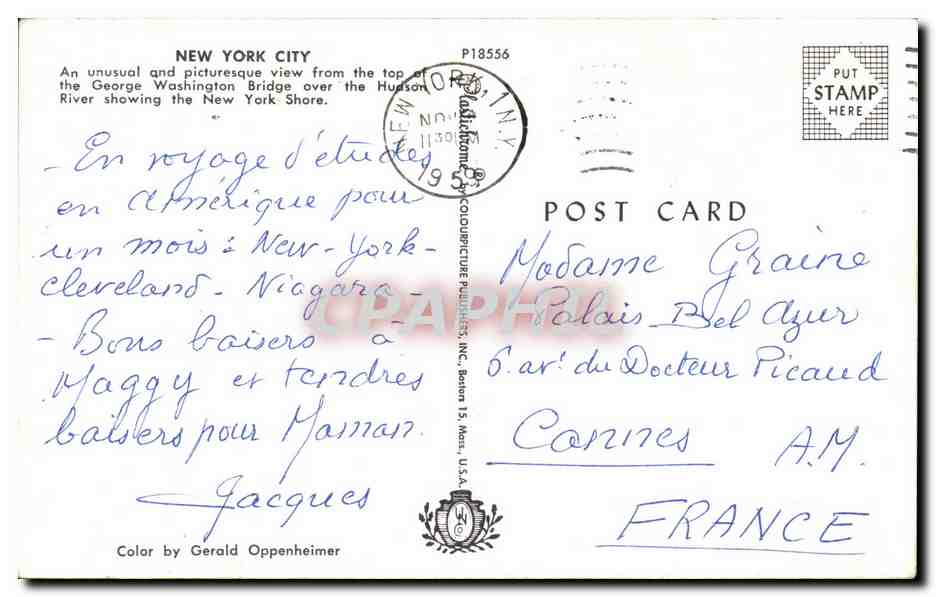 NEW YORK CITY
An unusual and picturesque view from the top of
the George Washington Bridge over the Hudson
River showing the New York Shore.
P18556
NEW YORK, 1 N.Y.
NOV
1130 M
195
PUT
STAMP
HERE
- En voyage d'études
en Amérique pour
un mois : New-York-
Cleveland - Niagara -
- Bons baisers à
Maggy et tendres
baisers pour Maman.
Jacques
Color by Gerald Oppenheimer
Plastichrome ® by COLOURPICTURE PUBLISHERS, INC., Boston 15, Mass., U.S.A.
CPAPHIL
POST CARD
Madame Graine
Palais Bel Azur
6. av. du Docteur Picaud
Cannes A.M.
FRANCE